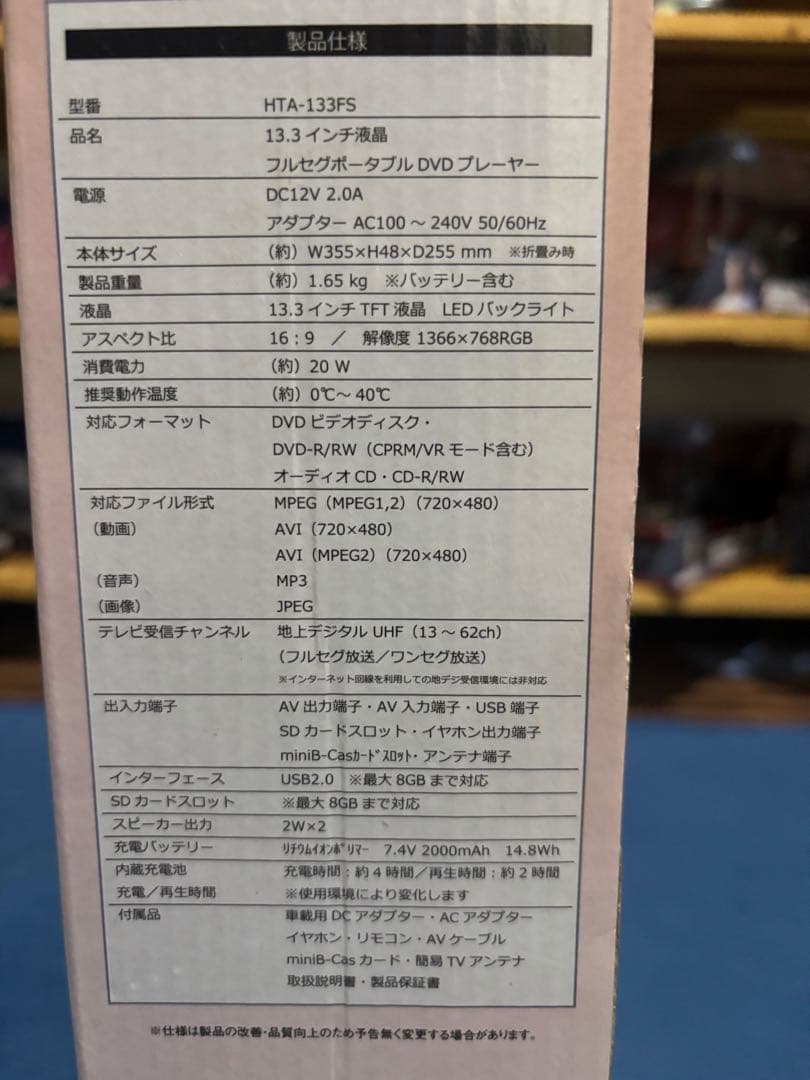 製品仕様
型番 HTA-133FS
品名 13.3インチ液晶
フルセグポータブルDVDプレーヤー
電源 DC12V 2.0A
アダプター AC100～240V 50/60Hz
本体サイズ （約）W355×H48×D255 mm ※折畳み時
製品重量 （約）1.65 kg ※バッテリー含む
液晶 13.3インチTFT液晶 LEDバックライト
アスペクト比 16：9 ／ 解像度 1366×768RGB
消費電力 （約）20 W
推奨動作温度 （約）0℃～40℃
対応フォーマット DVDビデオディスク・
DVD-R/RW（CPRM/VRモード含む）
オーディオCD・CD-R/RW
対応ファイル形式 MPEG（MPEG1,2）（720×480）
（動画） AVI（720×480）
AVI（MPEG2）（720×480）
（音声） MP3
（画像） JPEG
テレビ受信チャンネル 地上デジタルUHF（13～62ch）
（フルセグ放送／ワンセグ放送）
※インターネット回線を利用しての地デジ受信環境には非対応
出入力端子 AV出力端子・AV入力端子・USB端子
SDカードスロット・イヤホン出力端子
miniB-Casｶｰﾄﾞｽﾛｯﾄ・アンテナ端子
インターフェース USB2.0 ※最大8GBまで対応
SDカードスロット ※最大8GBまで対応
スピーカー出力 2W×2
充電バッテリー ﾘﾁｳﾑｲｵﾝﾎﾟﾘﾏｰ 7.4V 2000mAh 14.8Wh
内蔵充電池 充電時間：約4時間／再生時間：約2時間
充電／再生時間 ※使用環境により変化します
付属品 車載用DCアダプター・ACアダプター
イヤホン・リモコン・AVケーブル
miniB-Casカード・簡易TVアンテナ
取扱説明書・製品保証書
※仕様は製品の改善・品質向上のため予告無く変更する場合があります。